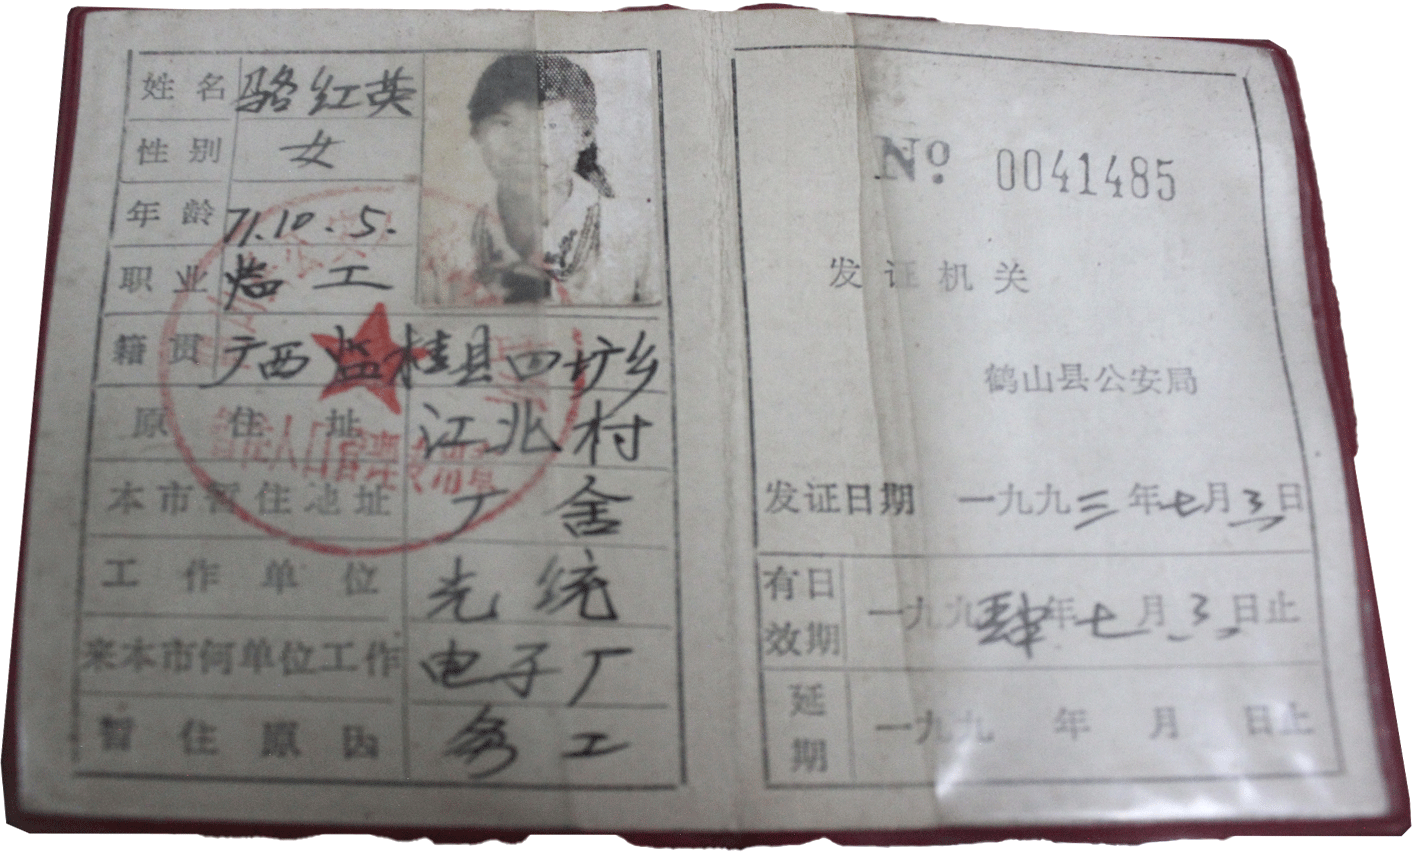 姓名 骆红英
性别 女
年龄 71.10.5.
职业 临工
籍贯 广西临桂县四圹乡
原住址 江北村
本市暂住地址 厂舍
工作单位 光统
来本市何单位工作 电子厂
暂住原因 务工
暂住人口管理专用章
No 0041485
发证机关
鹤山县公安局
发证日期 一九九三年七月三日
有效日期 一九九肆年七月三日止
延期 一九九 年 月 日止